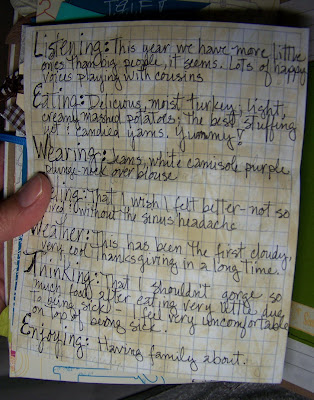 Listening: This year we have more little
ones than big people, it seems. Lots of happy
voices playing with cousins
Eating: Delicious, moist turkey, light,
creamy mashed potatoes; the best stuffing
yet; candied yams. Yummy!
Wearing: Jeans, white camisole purple
plunge-neck over blouse
eling: That I wish I felt better-not so
tired, without the sinus headache
Weather: This has been the first cloudy,
very cool Thanksgiving in a long time.
Thinking: That I shouldn't gorge so
much food after eating very little due
to being sick) - I feel very uncomfortable
on top of being sick.
Enjoying: Having family about.